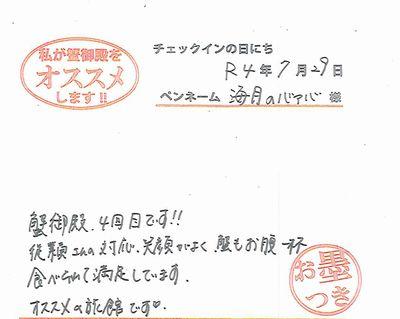 私が蟹御殿を
オススメ
します!!
チェックインの日にち
R4年7月29日
ペンネーム 海月のバァバ 様
蟹御殿、4回目です!!
の対応、笑顔がよく 蟹もお腹一杯
食べられて満足しています。
オススメの旅館です♡
お墨つき